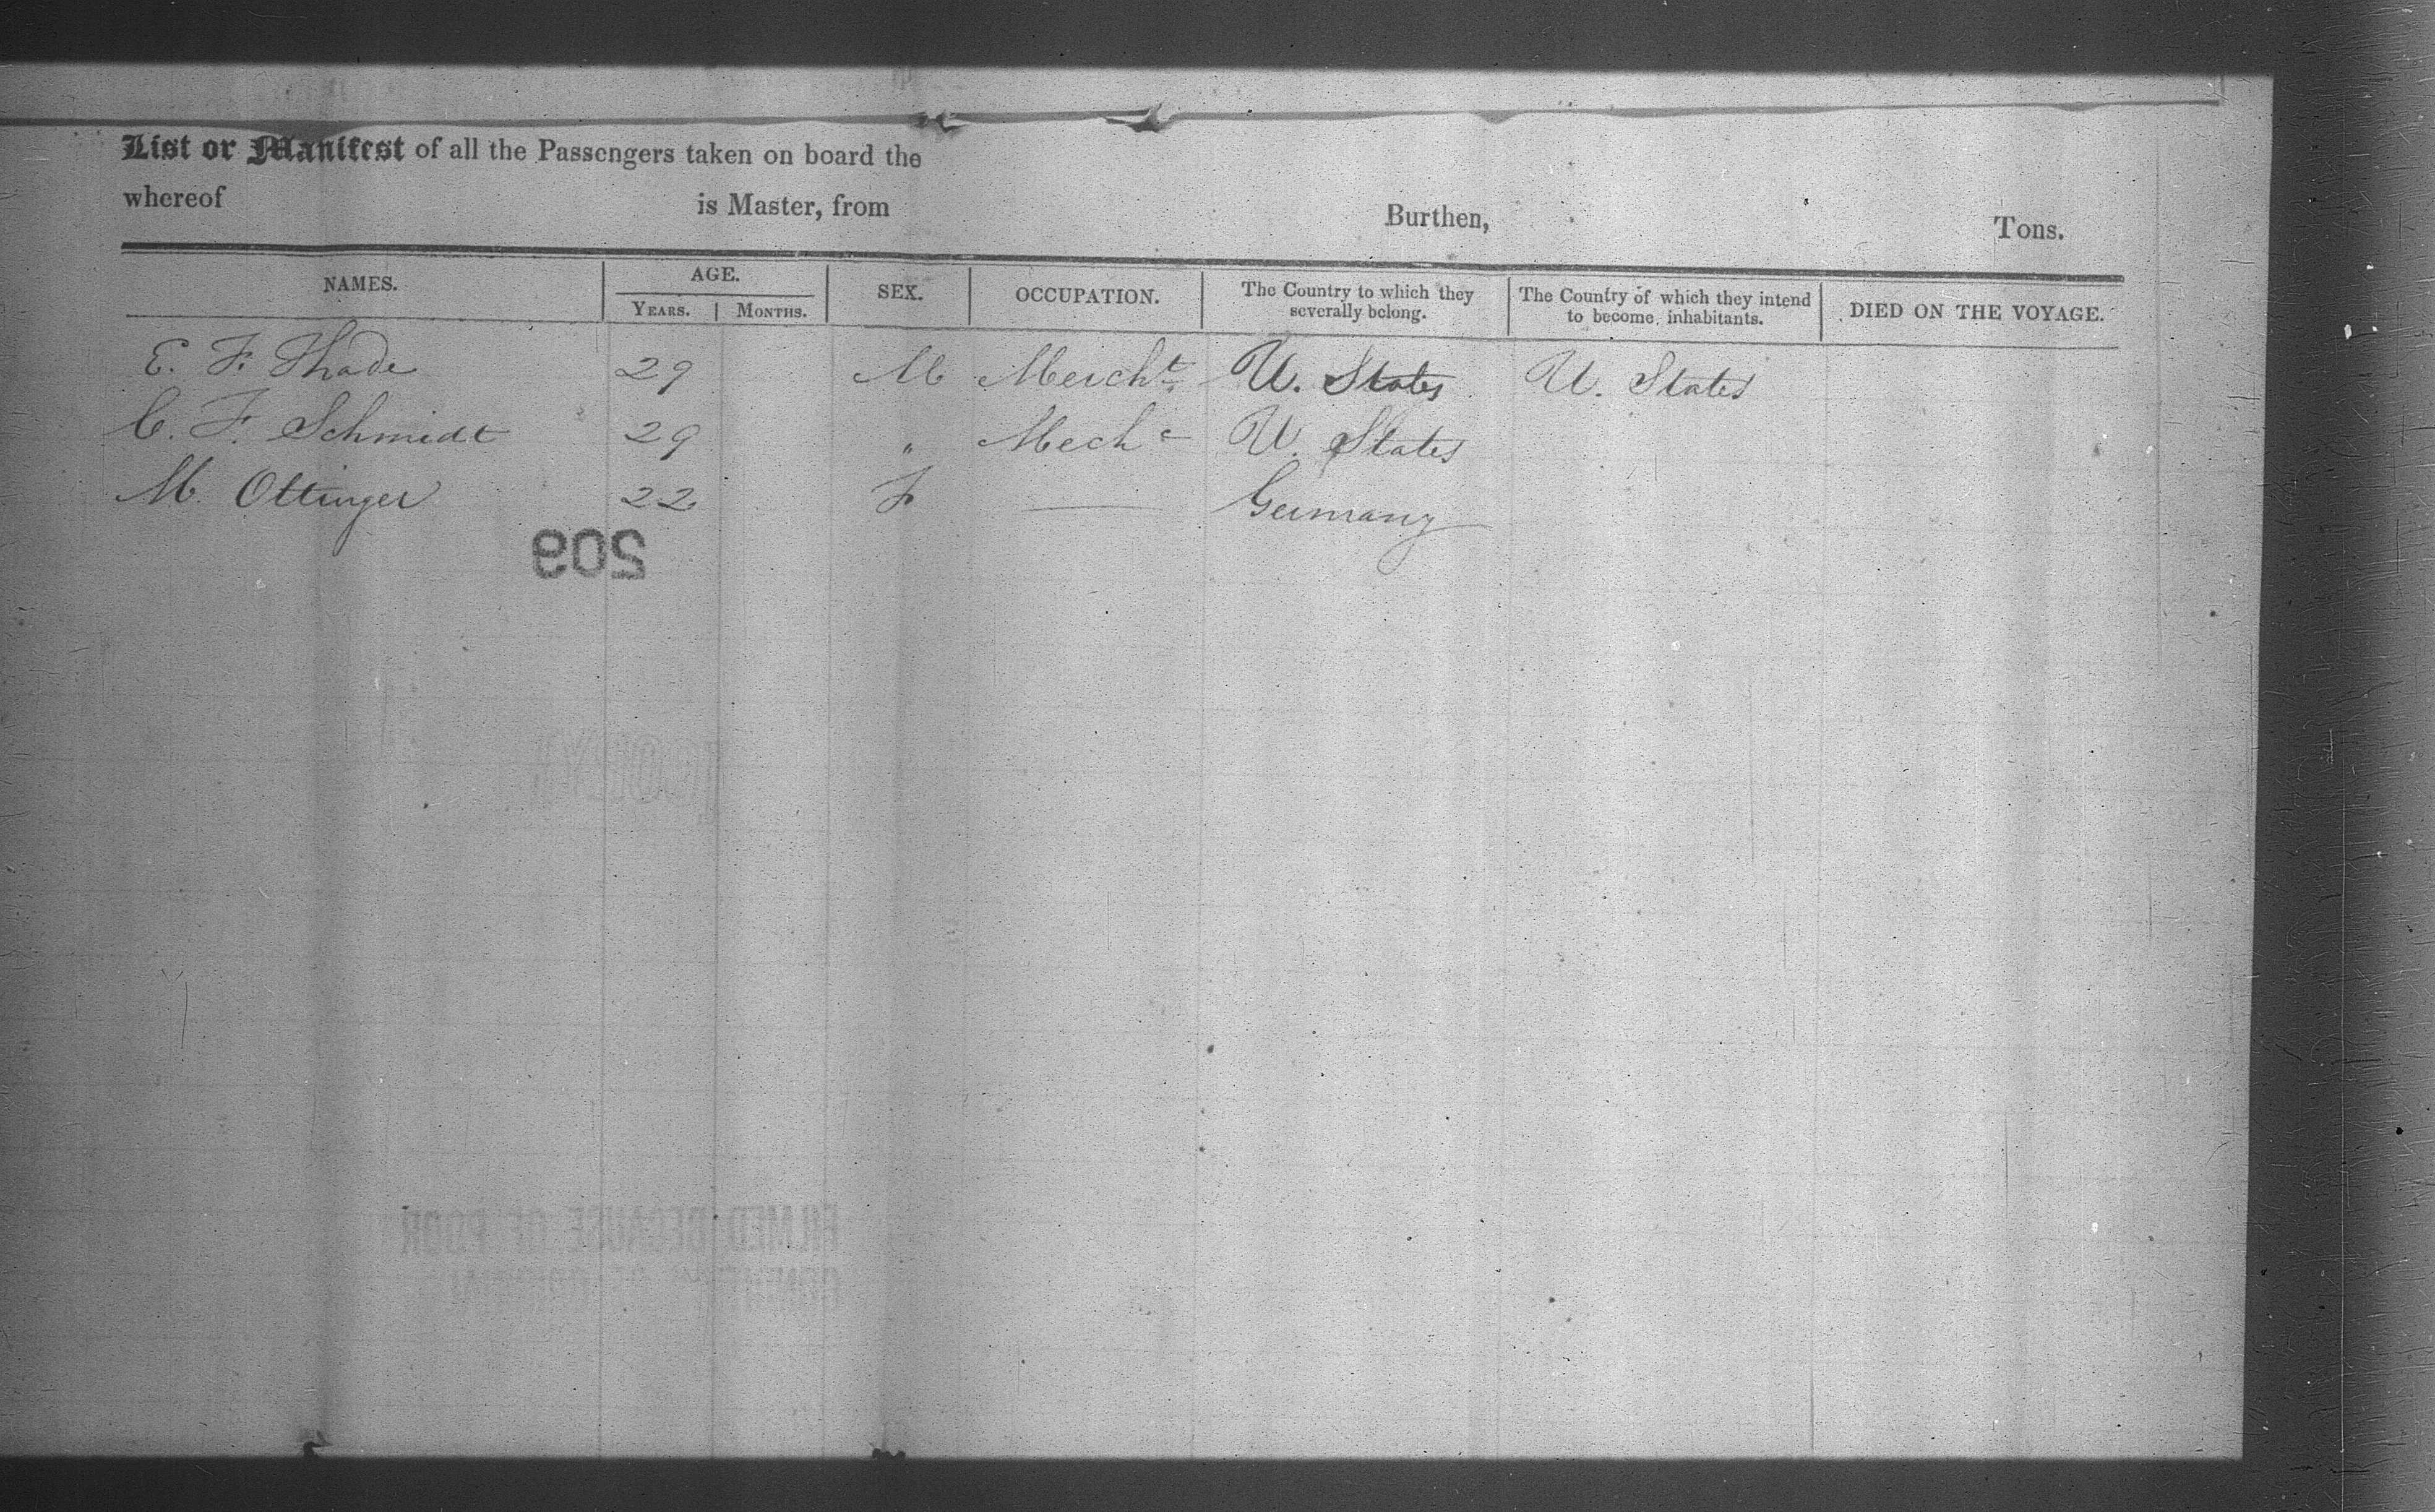 List or Manifest of all the Passengers taken on board the
whereof is Master, from Burthen, Tons.
NAMES. AGE. SEX. OCCUPATION. The Country to which they severally belong. The Country of which they intend to become inhabitants. DIED ON THE VOYAGE.
YEARS. MONTHS.
E. F. Thade 29 M Mercht U. States U. States
C. F. Schmidt 29 " Mechc U. States
M. Ottinger 22 F — Germany
203
FILMED BECAUSE OF POOR